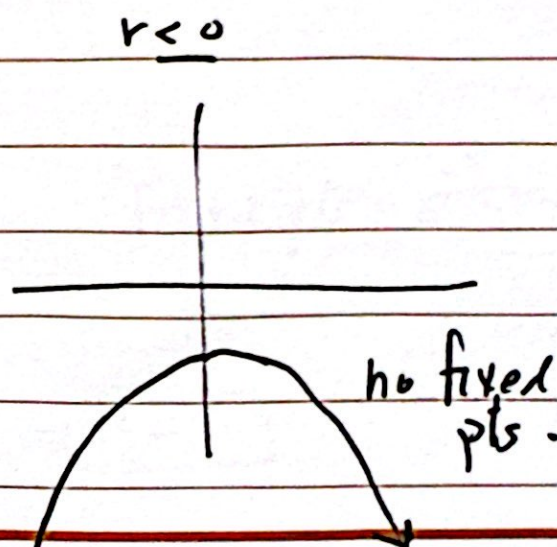 r < 0
no fixed
pts.